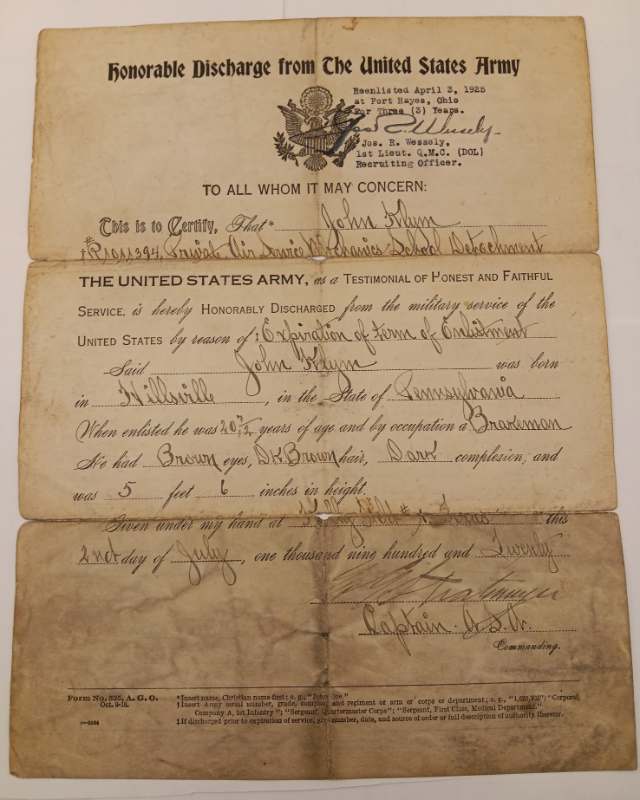 Honorable Discharge from The United States Army
Reenlisted April 3, 1925
at Fort Hayes, Ohio
for Three (3) Years.
Jos R Wessely
Jos. R. Wessely,
1st Lieut. Q.M.C. (DOL)
Recruiting Officer.
TO ALL WHOM IT MAY CONCERN:
This is to Certify, That* John Klym
Private Air Service Mechanics School Detachment
THE UNITED STATES ARMY, as a TESTIMONIAL OF HONEST AND FAITHFUL
SERVICE, is hereby HONORABLY DISCHARGED from the military service of the
UNITED STATES by reason of ‡ Expiration of term of Enlistment
Said John Klym was born
in Hillsville, in the State of Pennsylvania
When enlisted he was 20 7/12 years of age and by occupation a Brakeman
He had Brown eyes, Dk Brown hair, Dark complexion, and
was 5 feet 6 inches in height.
Given under my hand at Texas this
2nd day of July, one thousand nine hundred and Twenty
Captain A.S.A.
Commanding.
Form No. 525, A. G. O.
Oct. 9-18.
*Insert name, Christian name first; e. g., "John Doe."
†Insert Army serial number, grade, company and regiment or arm or corps or department; e. g., "1,620,302"; "Corporal,
Company A, 1st Infantry"; "Sergeant, Quartermaster Corps"; "Sergeant, First Class, Medical Department."
‡If discharged prior to expiration of service, give number, date, and source of order or full description of authority therefor.